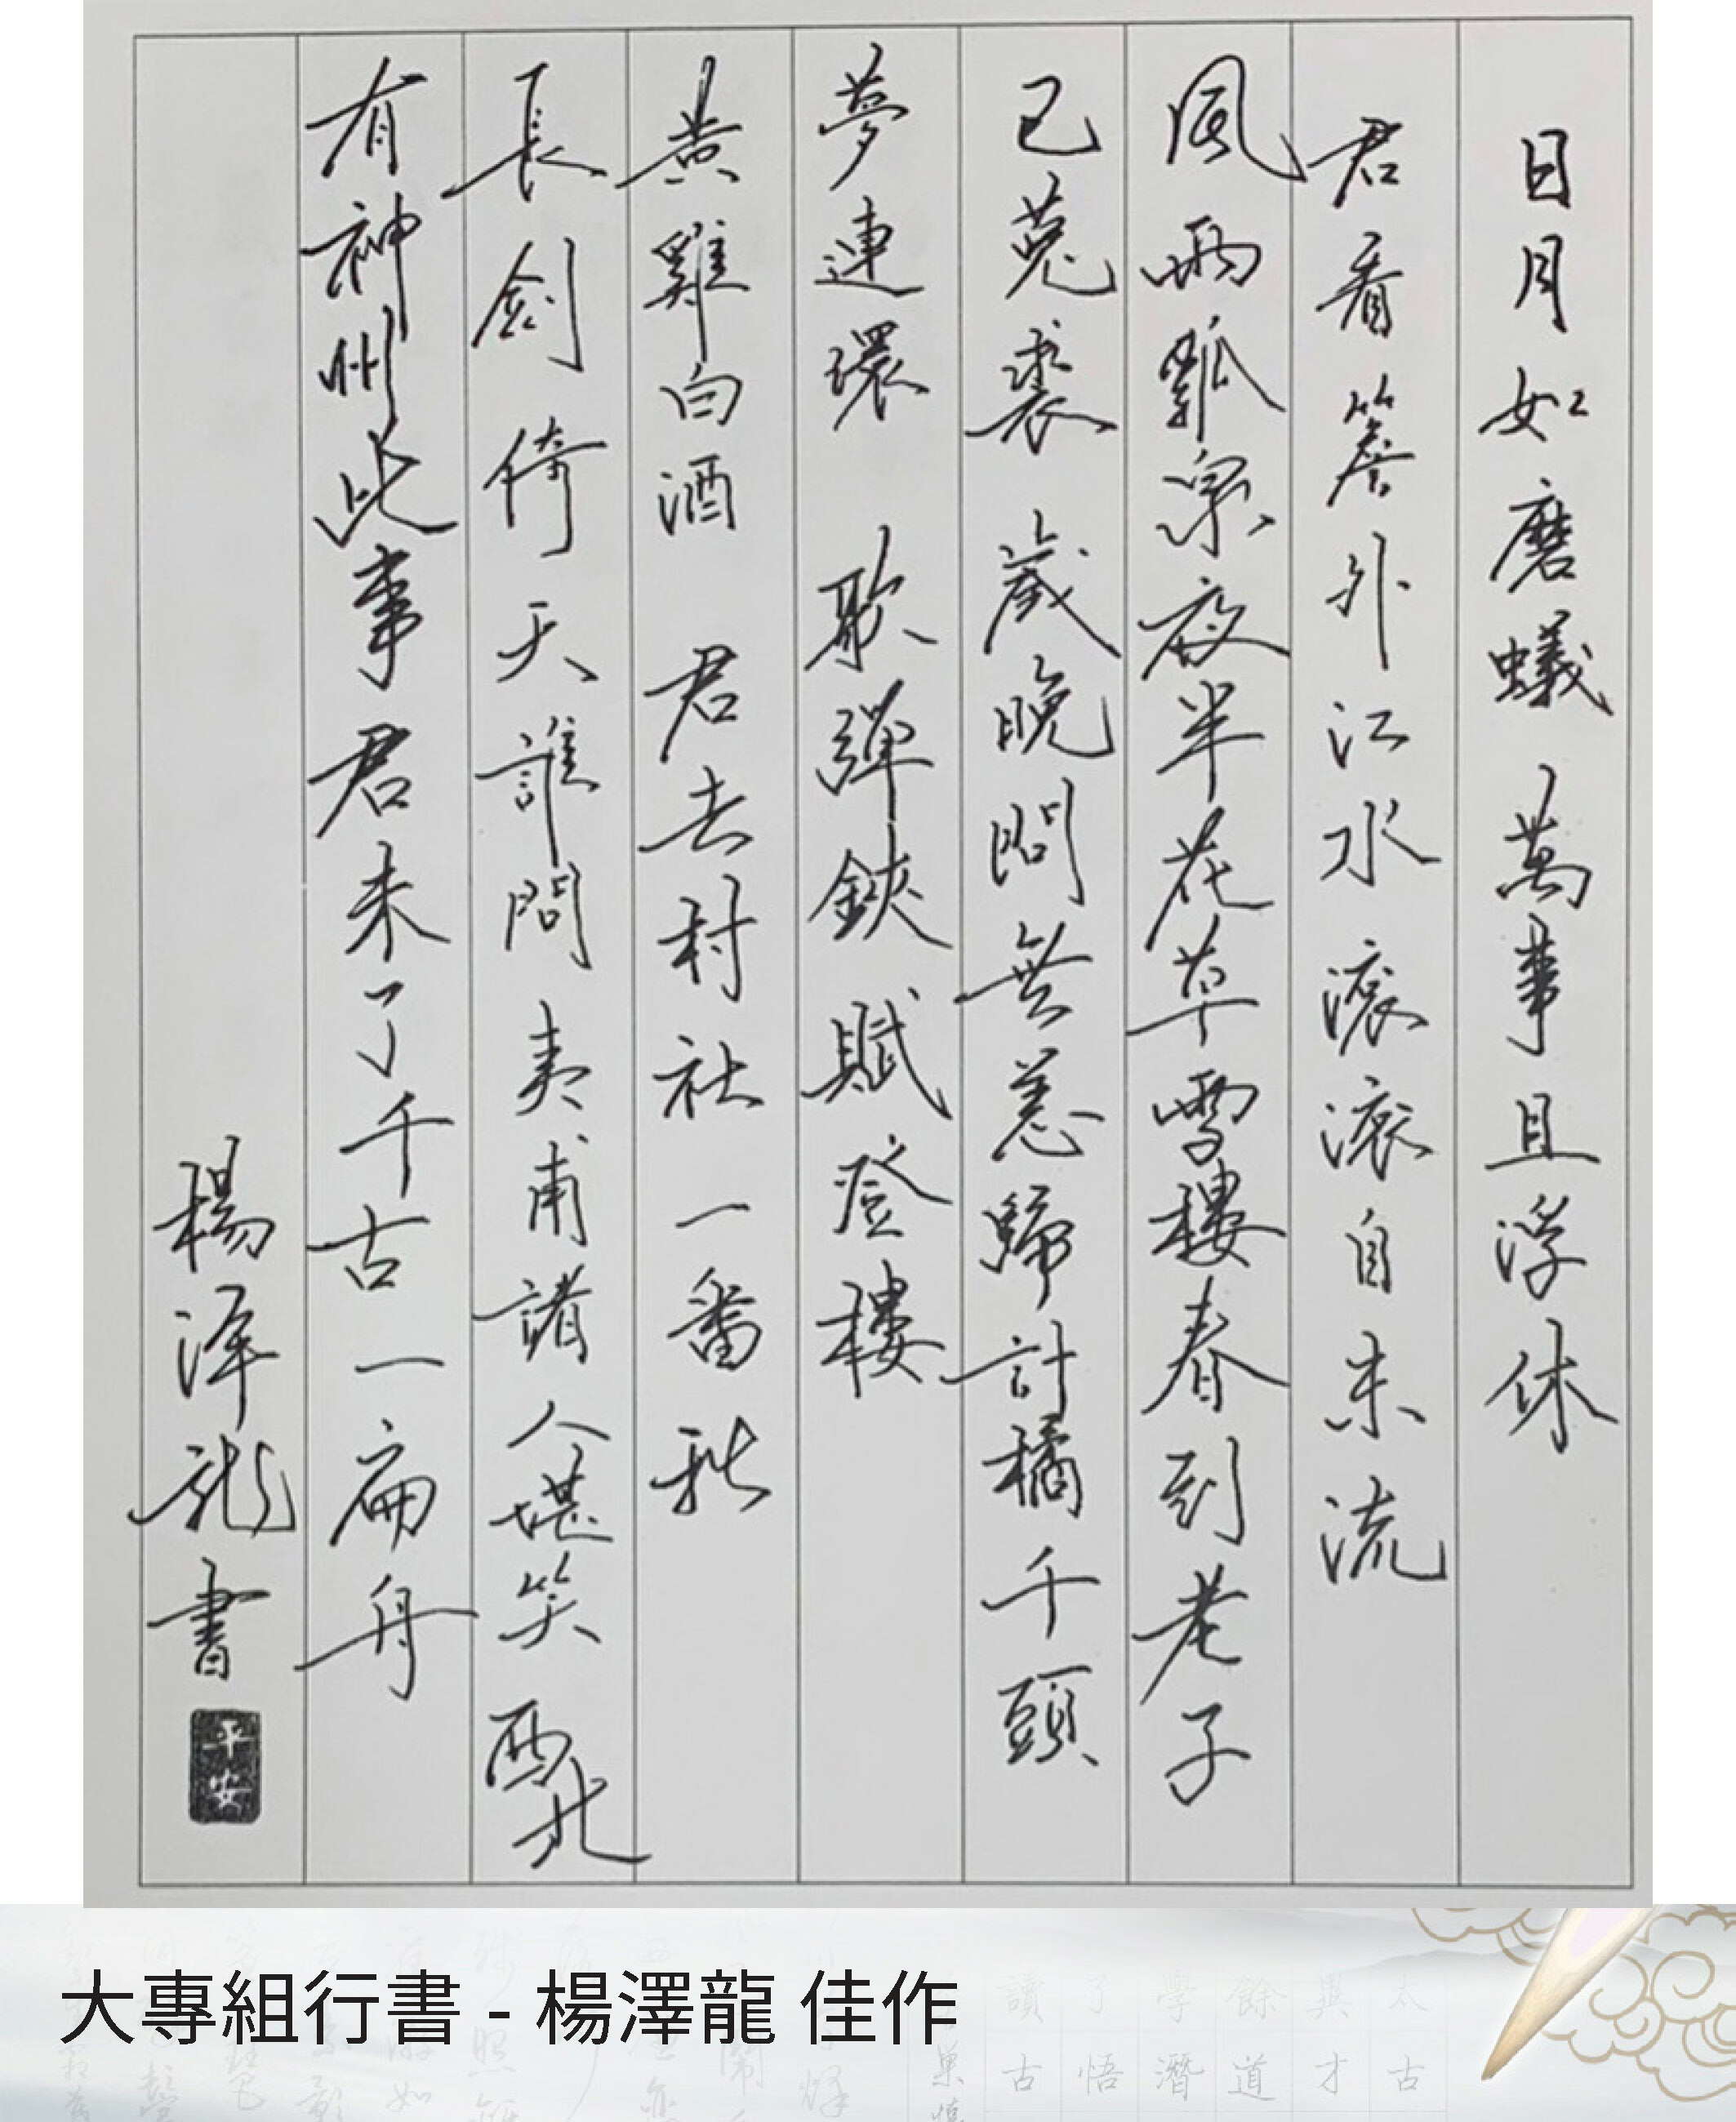 日月如磨蟻 萬事且浮休
君看簷外江水滾滾自東流
風雨瓢泉夜半花草雪樓春到老子
已菟裘 歲晚問無恙歸計橘千頭
夢連環 歌彈鋏賦登樓
黃雞白酒 君去村社一番秋
長劍倚天誰問夷甫諸人堪笑 西北
有神州此事君未了千古一扁舟
楊澤龍書
平安
大專組行書 - 楊澤龍 佳作